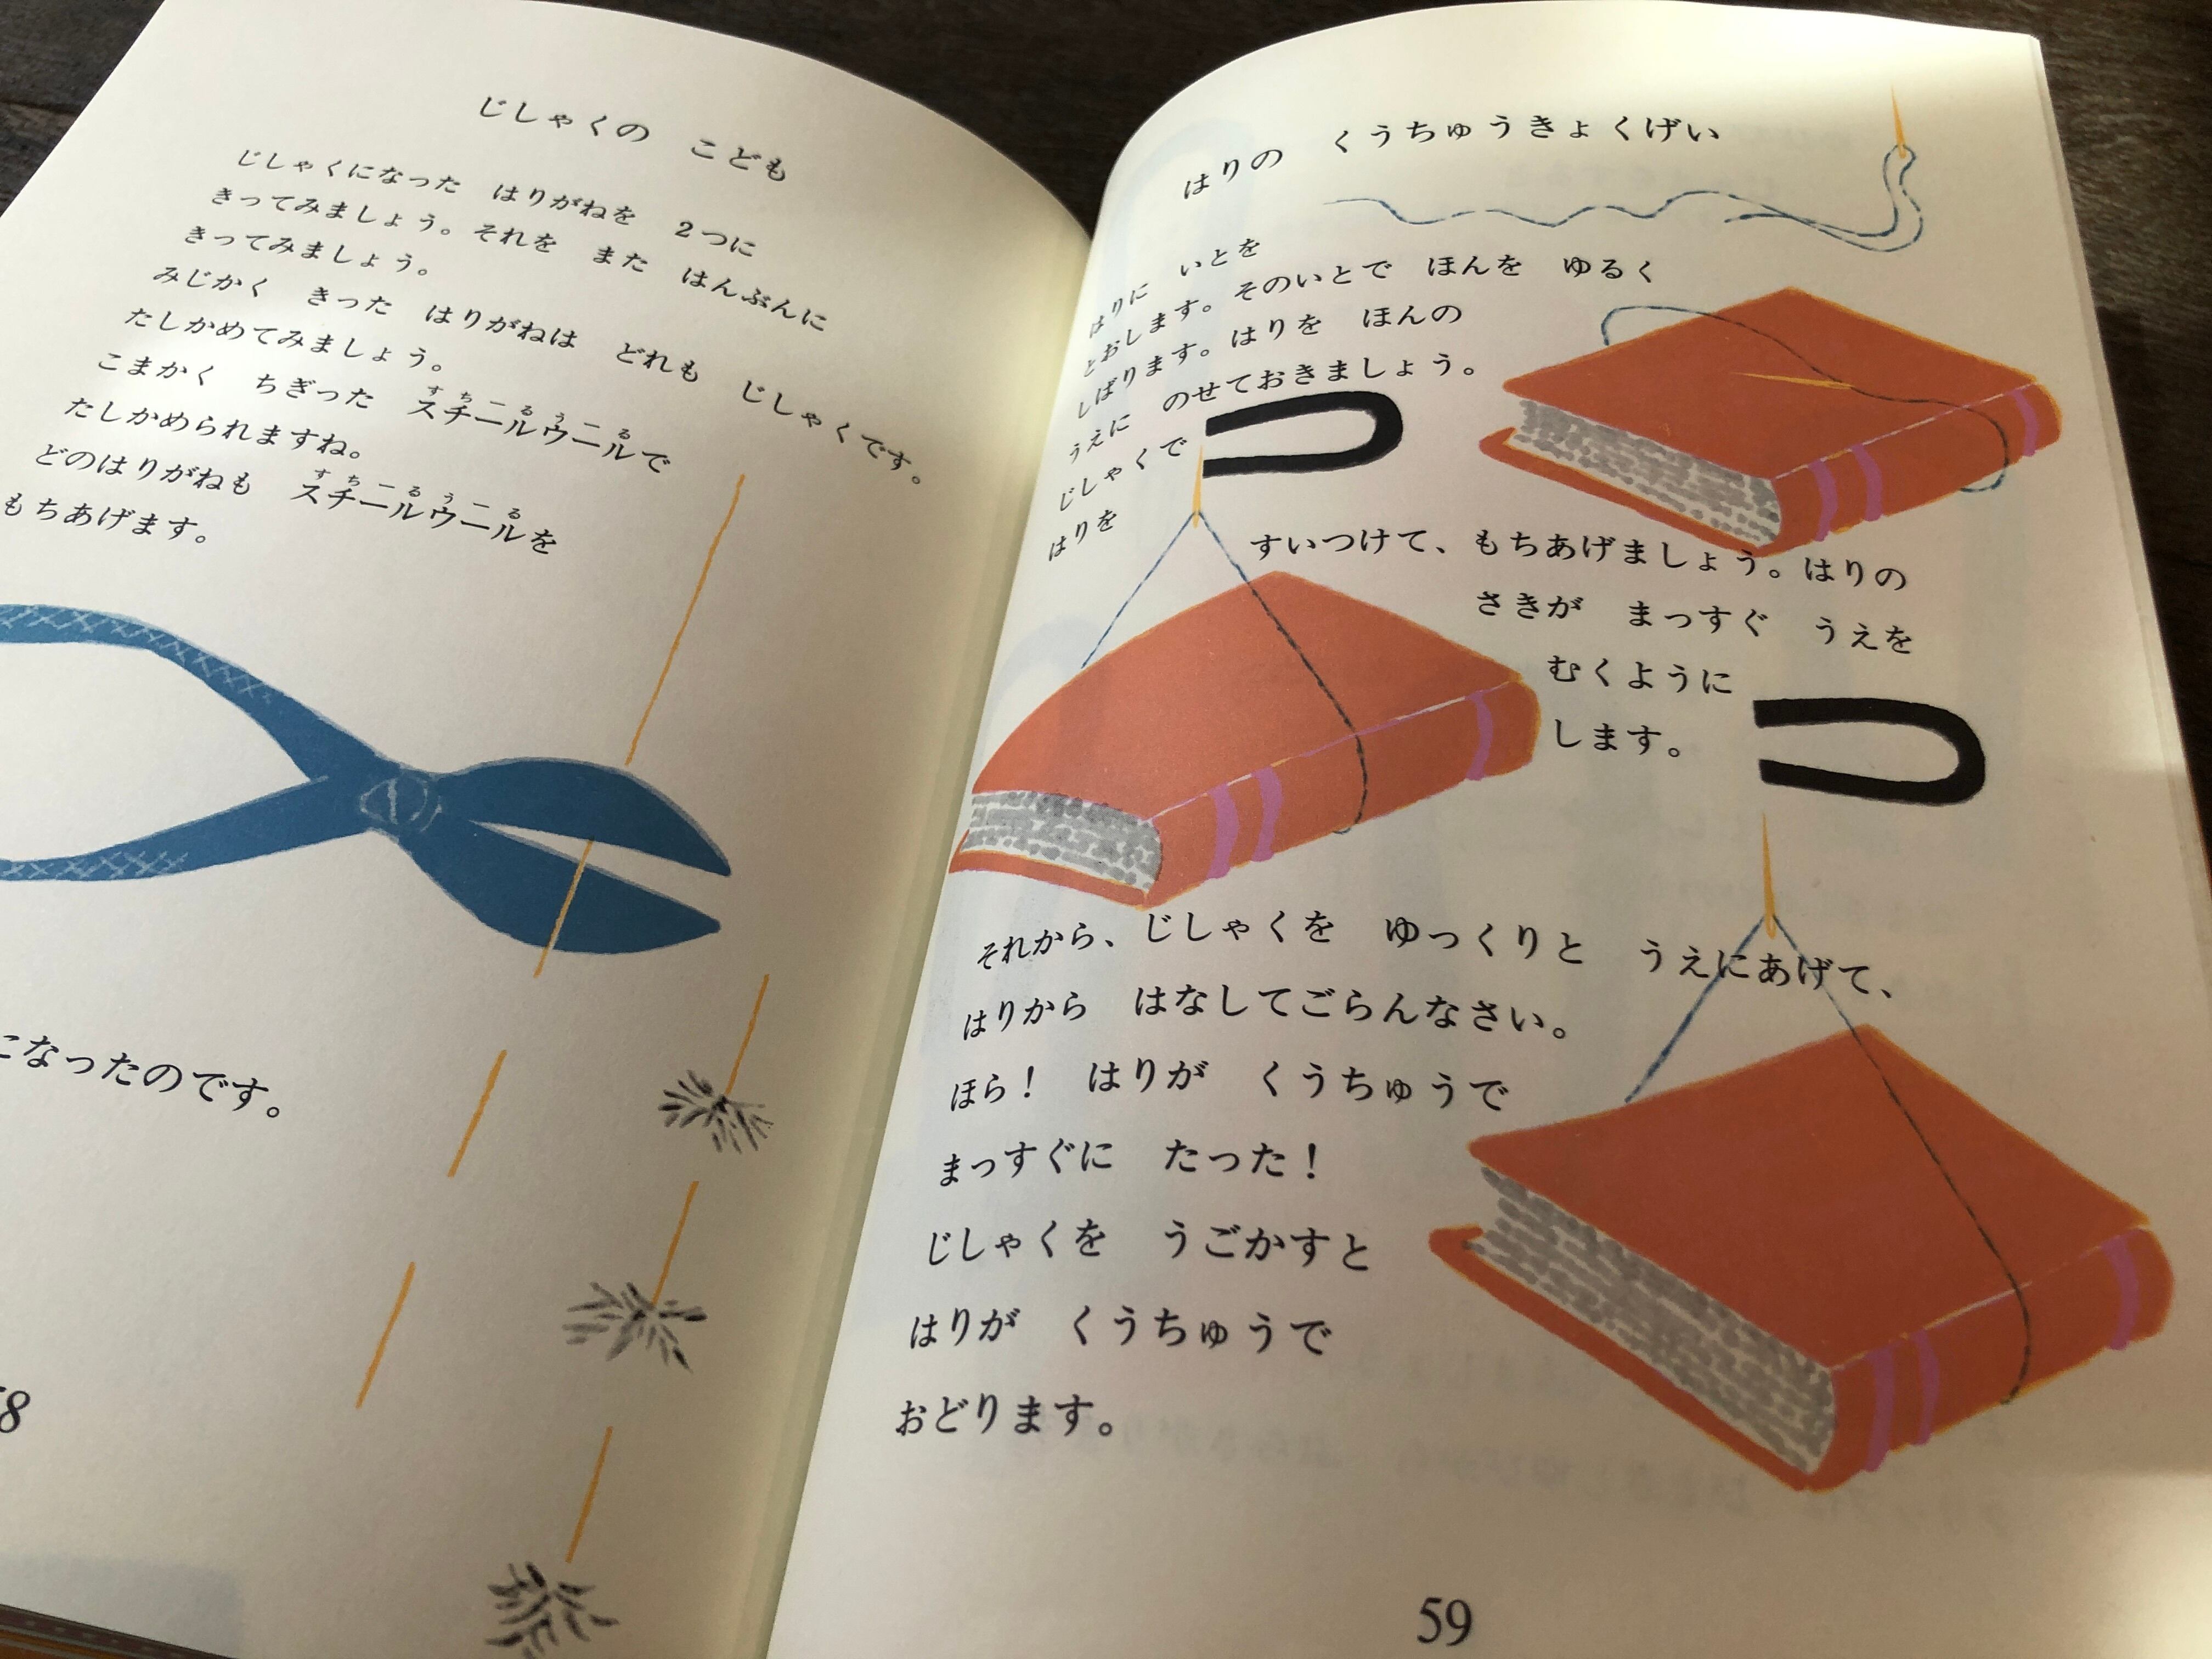 じしゃくの　こども
じしゃくになった　はりがねを　２つに
きってみましょう。それを　また　はんぶんに
きってみましょう。
みじかく　きった　はりがねは　どれも　じしゃくです。
たしかめてみましょう。
こまかく　ちぎった　スチールウールで
すちーるうーる
たしかめられますね。
どのはりがねも　スチールウールを
すちーるうーる
もちあげます。
になったのです。
58
はりの　くうちゅうきょくげい
はりに　いとを
とおします。そのいとで　ほんを　ゆるく
しばります。はりを　ほんの
うえに　のせておきましょう。
じしゃくで
はりを
すいつけて、もちあげましょう。はりの
さきが　まっすぐ　うえを
むくように
します。
それから、じしゃくを　ゆっくりと　うえにあげて、
はりから　はなしてごらんなさい。
ほら！　はりが　くうちゅうで
まっすぐに　たった！
じしゃくを　うごかすと
はりが　くうちゅうで
おどります。
59